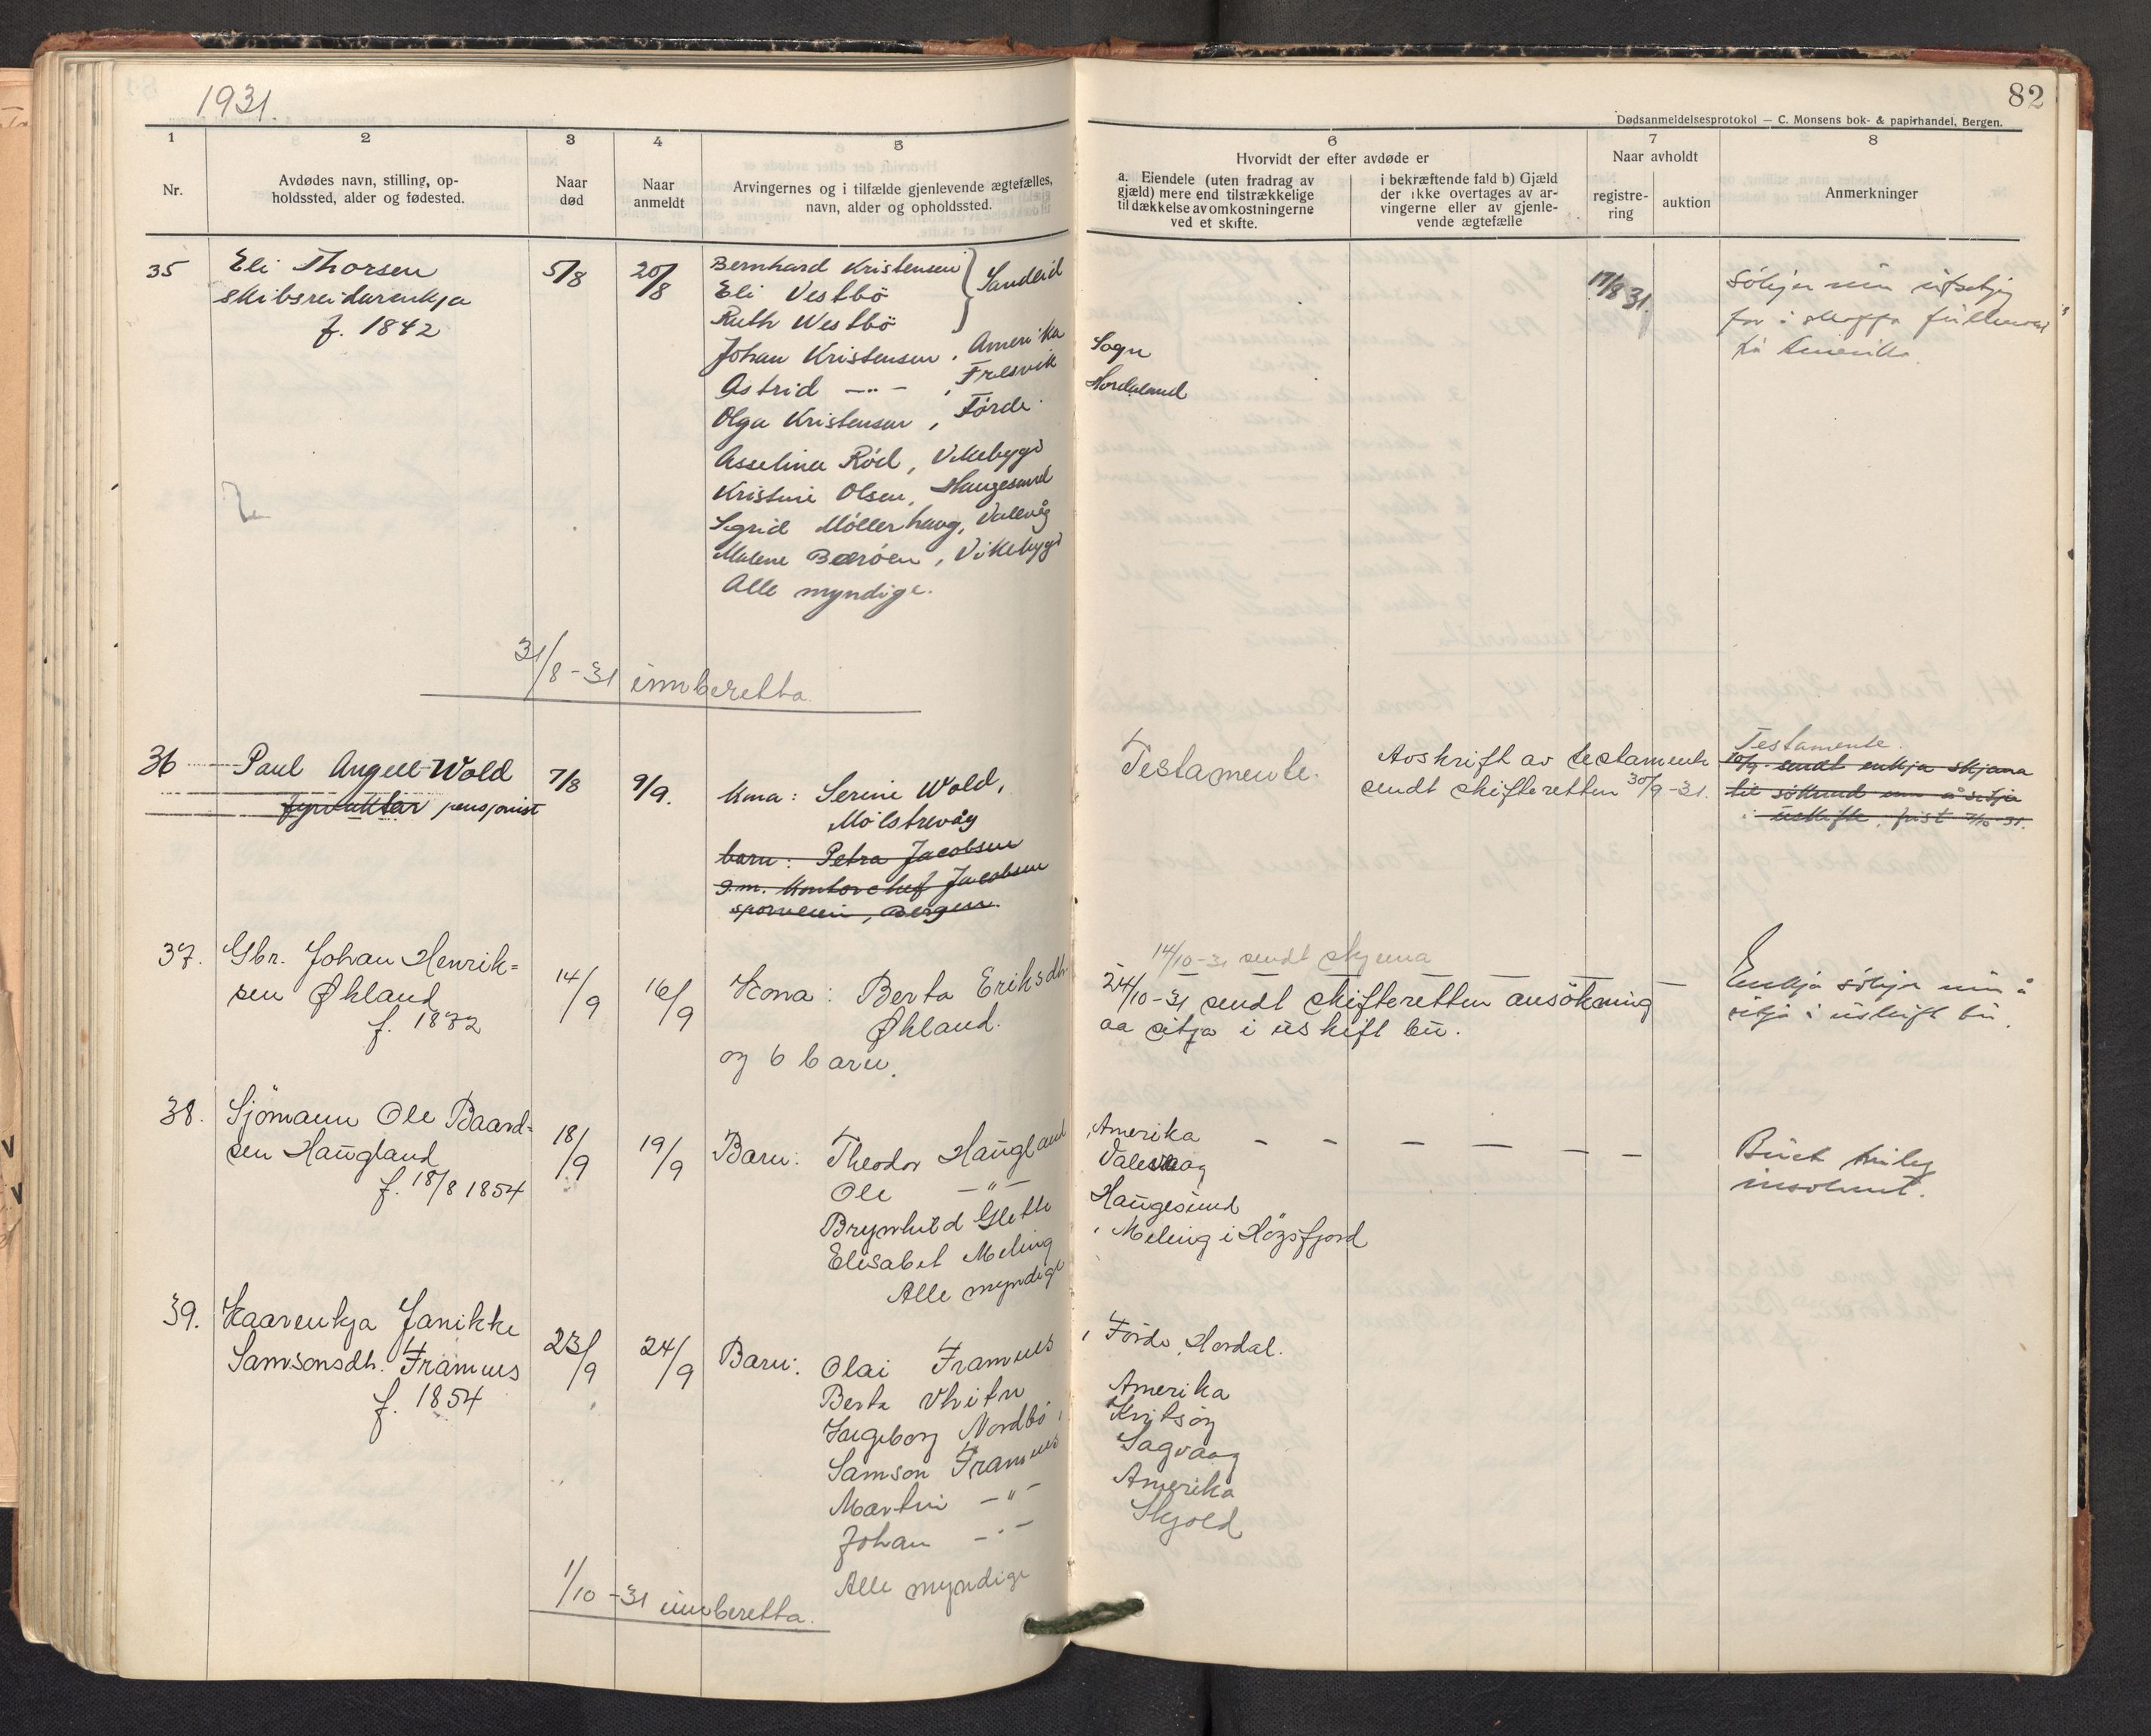 1931.
82
Dødsanmeldelsesprotokol — C. Monsens bok- & papirhandel, Bergen.
1
2
3
4
5
6
7
8
Nr.
Avdødes navn, stilling, op-
holdssted, alder og fødested.
Naar
død
Naar
anmeldt
Arvingernes og i tilfælde gjenlevende ægtefælles,
navn, alder og opholdssted.
Hvorvidt der efter avdøde er
a. Eiendele (uten fradrag av
gjæld) mere end tilstrækkelige
til dækkelse av omkostningerne
ved et skifte.
i bekræftende fald b) Gjæld
der ikke overtages av ar-
vingerne eller av gjenle-
vende ægtefælle
Naar avholdt
registre-
ring
auktion
Anmerkninger
35
Eli Thorsen
skibsreidarenkja
f. 1842
5/8
20/8
Bernhard Kristensen
Eli Vestbö
Ruth Westbö
} Sandeid
Johan Kristensen, Amerika
Astrid —"—, Fresvik Sogn
Olga Kristensen, Förde Hordaland
Asseline Röd, Vikebygd
Kristine Olsen, Haugesund
Sigrid Möllerhaug, Vallevåg
Malene Bæröen, Vikebygd
Alle myndige.
17/8 31.
Sökjer um utsetjing
for å skaffa fullmakt
frå Amerika.
31/8-31 innberetta.
36
Paul Angell Wold
fyrvaktar pensjonist
7/8
9/9.
Kona: Serine Wold,
Mölstrevåg
barn: Petra Jacobsen
g.m. Kontorchef Jacobsen
sporveien, Bergen.
Testamente.
Avskrift av testamente
sendt skifteretten 30/9-31.
Testamente.
10/9. sendt enkja skjema
til söknad um å sitja
i uskifte, frist
37.
Gbr. Johan Henrik=
sen Økland
f. 1872
14/9
16/9
Kona: Berta Eriksdtr
Økland.
og 6 barn.
14/10-31 sendt skjema
24/10-31 sendt skifteretten ansökning
aa sitja i uskift bu.
Enkja sökjer um å
sitja i uskift bu.
38.
Sjömann Ole Baard=
sen Haugland
f. 18/8 1854
18/9
19/9
Barn: Theodor Haugland, Amerika
Ole —"— Valevaag
Brynhild Slette Haugesund
Elisabet Meling, Meling i Högsfjord
Alle myndige
Buet truleg
insolvent.
39.
Kaarenkja Janikke
Samsonsdtr. Framnes
f. 1854
23/9
24/9
Barn: Olai Framnes, Förde, Hordal.
Berta Amerika
Ingeborg Nordbö,
Samson Framnes Sagvaag
Martin —"— Amerika
Johan —"— Skjold
Alle myndige
1/10-31 innberetta.